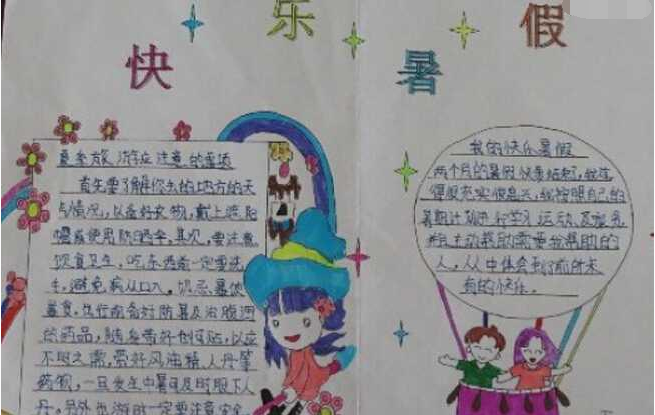 快乐暑假
夏季旅游应注意的事项
首先要了解你去的地方的天
气情况，以备好衣物，戴上遮阳
帽或使用防晒伞。其次，要注意
饮食卫生，吃东西前一定要洗
手，避免病从口入，切忌暴饮
暴食，出行前备好防暑及治腹泻
的药品，随身带好创可贴，以应
不时之需，带好风油精人丹等
药物，一旦发生中暑可及时服下人
丹。另外出游时一定要注意安全
我的快乐暑假
两个月的暑假快要结束，我过
得很充实很意义，我按照自己的
暑期计划进行学习运动
和主动帮助需要我帮助的
人，从中体会到了前所未
有的快乐。